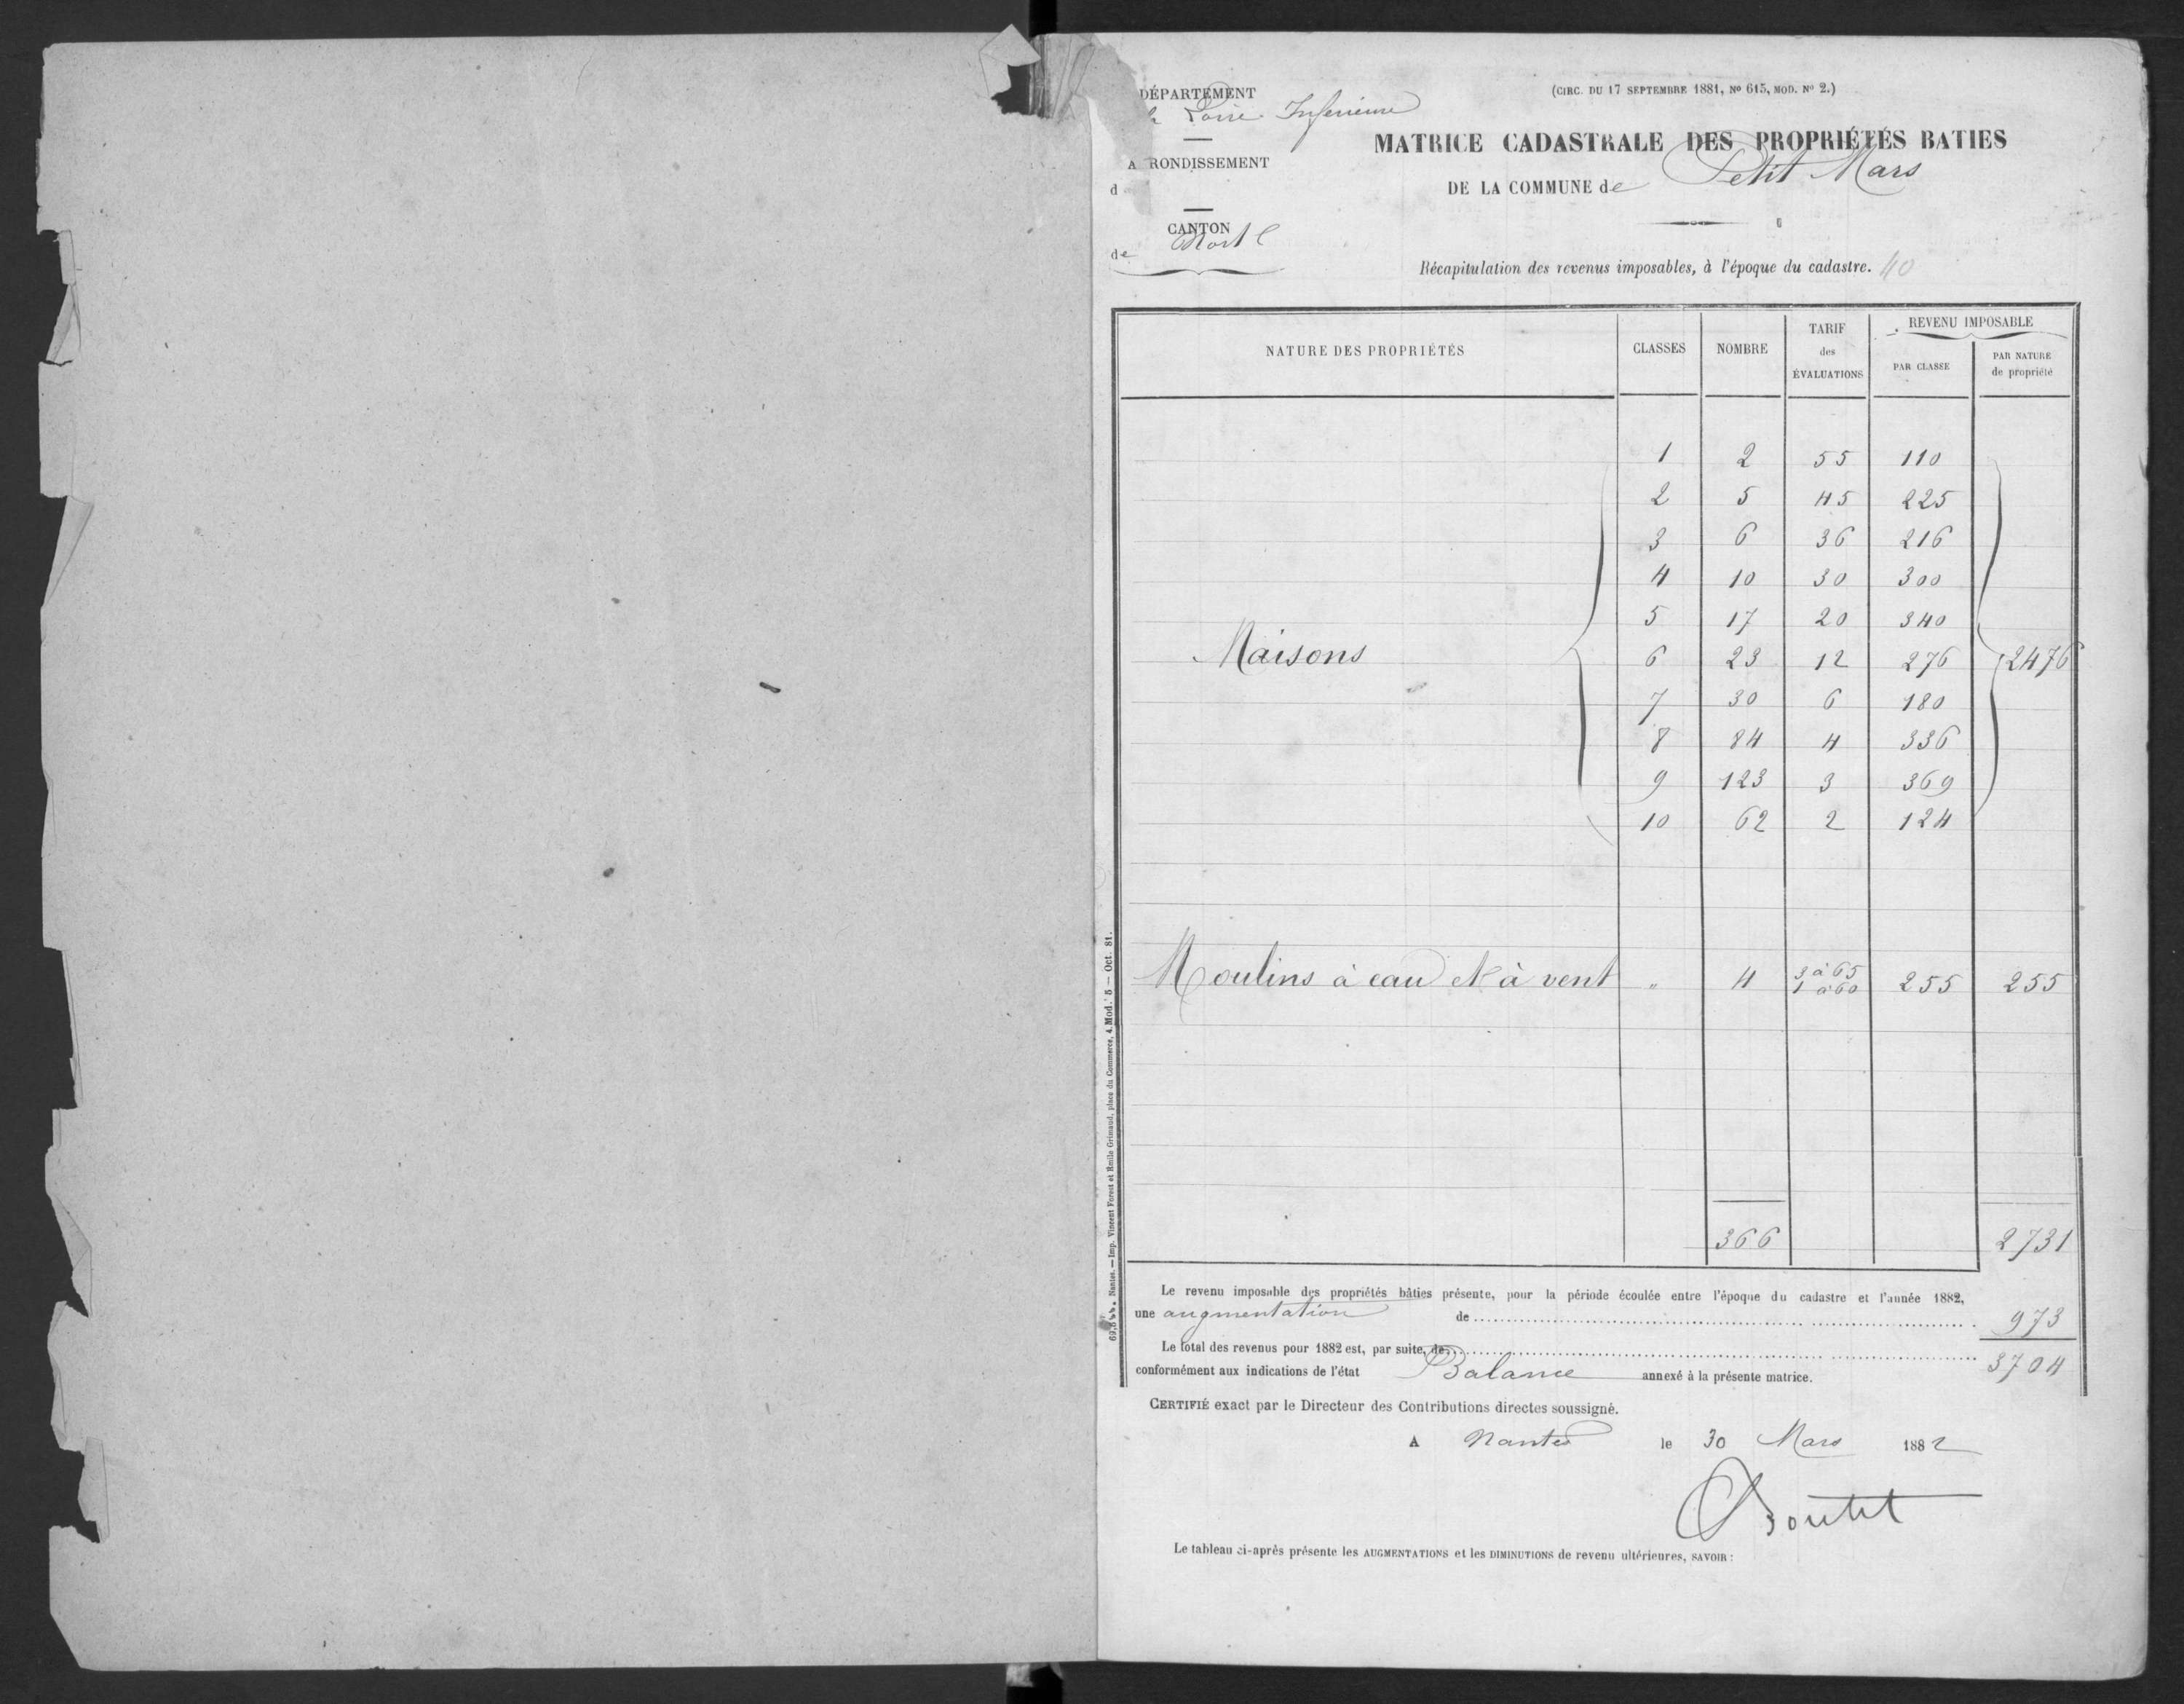 DÉPARTEMENT
la Loire Inférieure
A RONDISSEMENT
d
CANTON
de Nort
(CIRC. DU 17 SEPTEMBRE 1881, No 615, MOD. No 2.)
MATRICE CADASTRALE DES PROPRIÉTÉS BATIES
DE LA COMMUNE de Petit Mars
Récapitulation des revenus imposables, à l'époque du cadastre. 40
NATURE DES PROPRIÉTÉS CLASSES NOMBRE TARIF des ÉVALUATIONS REVENU IMPOSABLE PAR CLASSE PAR NATURE de propriété
1 2 55 110
2 5 45 225
3 6 36 216
4 10 30 300
5 17 20 340
Maisons 6 23 12 276 2476
7 30 6 180
8 84 4 336
9 123 3 369
10 62 2 124
Moulins à eau et à vent " 4 3 à 65 1 à 60 255 255
366 2731
Le revenu imposable des propriétés bâties présente, pour la période écoulée entre l'époque du cadastre et l'année 1882,
une augmentation de 973
Le total des revenus pour 1882 est, par suite, de 3704
conformément aux indications de l'état Balance annexé à la présente matrice.
CERTIFIÉ exact par le Directeur des Contributions directes soussigné.
A Nantes le 30 Mars 1882
Boutet
Le tableau ci-après présente les AUGMENTATIONS et les DIMINUTIONS de revenu ultérieures, SAVOIR :
Nantes. — Imp. Vincent Forest et Emile Grimaud, place du Commerce, 4. Mod. 5 — Oct. 81.